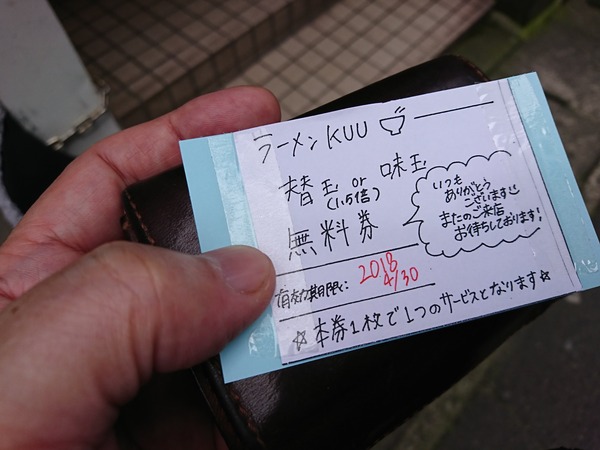 ラーメン KUU
替玉 or 味玉
(1.5倍)
無料券
いつも
ありがとう
ございます
またのご来店
お待ちしております!
有効期限: 2018 4/30
☆本券1枚で1つのサービスとなります☆